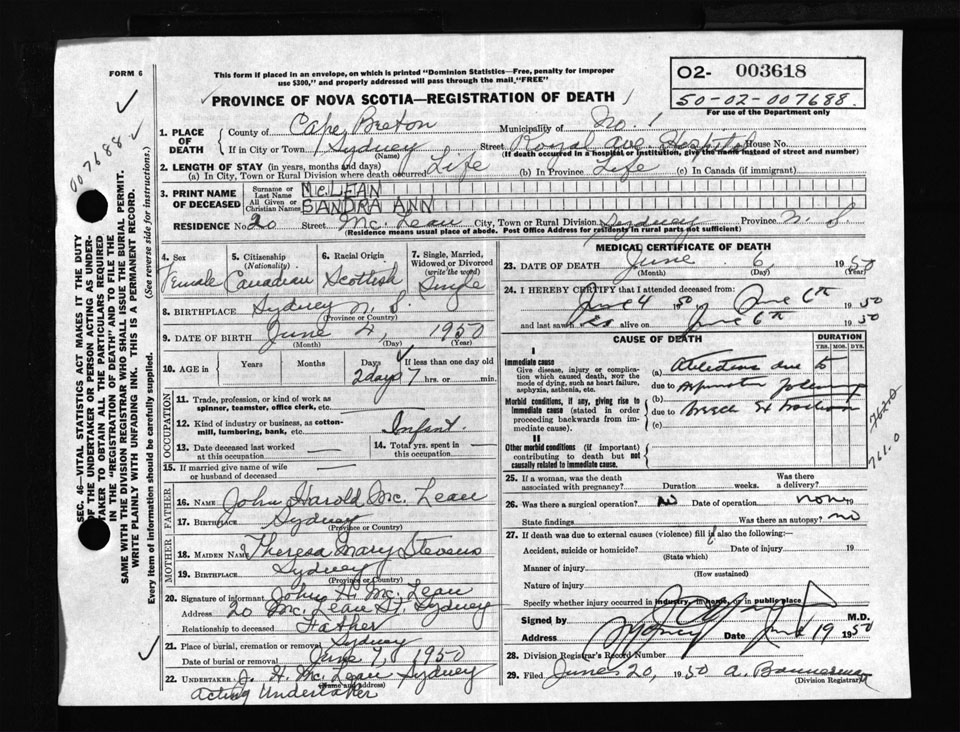 FORM 6
This form if placed in an envelope, on which is printed "Dominion Statistics—Free, penalty for improper
use $300," and properly addressed will pass through the mail "FREE"
O2- 003618
50-02-007688
For use of the Department only
PROVINCE OF NOVA SCOTIA—REGISTRATION OF DEATH
007688
SEC. 46—VITAL STATISTICS ACT MAKES IT THE DUTY
OF THE UNDERTAKER OR PERSON ACTING AS UNDER-
TAKER TO OBTAIN ALL THE PARTICULARS REQUIRED
IN THE "REGISTRATION OF DEATH" AND TO FILE THE
SAME WITH THE DIVISION REGISTRAR WHO SHALL ISSUE THE BURIAL PERMIT.
WRITE PLAINLY WITH UNFADING INK. THIS IS A PERMANENT RECORD.
Every item of information should be carefully supplied. (See reverse side for instructions.)
1. PLACE OF DEATH County of Cape Breton Municipality of No. 1
If in City or Town Sydney (Name) Street Ave. Hospital House No.
(If death occurred in a hospital or institution, give the name instead of street and number)
2. LENGTH OF STAY (in years, months and days)
(a) In City, Town or Rural Division where death occurred Life (b) In Province Life (c) In Canada (if immigrant)
3. PRINT NAME OF DECEASED Surname or Last Name McLEAN
All Given or Christian Names SANDRA ANN
RESIDENCE No. 20 Street Mc. Lean City, Town or Rural Division Sydney Province N. S.
(Residence means usual place of abode. Post Office Address for residents in rural parts not sufficient)
4. Sex Female
5. Citizenship (Nationality) Canadian
6. Racial Origin Scottish
7. Single, Married, Widowed or Divorced (write the word) Single
8. BIRTHPLACE Sydney N. S.
(Province or Country)
9. DATE OF BIRTH June 4 1950
(Month) (Day) (Year)
10. AGE in Years Months Days If less than one day old
2 days 7 hrs. or min.
OCCUPATION
11. Trade, profession, or kind of work as
spinner, teamster, office clerk, etc.
12. Kind of industry or business, as cotton-
mill, lumbering, bank, etc. Infant.
13. Date deceased last worked
at this occupation
14. Total yrs. spent in
this occupation
15. If married give name of wife
or husband of deceased
FATHER
16. NAME John Harold Mc. Lean
17. BIRTHPLACE Sydney
(Province or Country)
MOTHER
18. MAIDEN NAME Theresa Mary Stevens
19. BIRTHPLACE Sydney
(Province or Country)
20. Signature of informant John H. Mc. Lean
Address 20 Mc. Lean St, Sydney
Relationship to deceased Father
21. Place of burial, cremation or removal Sydney
Date of burial or removal June 7, 1950
22. UNDERTAKER J. H. Mc. Lean Sydney
(Name and address)
Acting Undertaker
MEDICAL CERTIFICATE OF DEATH
23. DATE OF DEATH June 6 1950
(Month) (Day) (Year)
24. I HEREBY CERTIFY that I attended deceased from:
June 4 1950 to June 6th 1950
and last saw alive on June 6th 1950
CAUSE OF DEATH
DURATION
YRS. MOS. DYS.
I
Immediate cause
Give disease, injury or complica-
tion which caused death, not the
mode of dying, such as heart failure,
asphyxia, asthenia, etc.
(a) due to
due to
(b)
Morbid conditions, if any, giving rise to
immediate cause (stated in order
proceeding backwards from im-
mediate cause).
due to breech Extraction
(c)
II
Other morbid conditions (if important)
contributing to death but not
causally related to immediate cause.
762-0
761.0
25. If a woman, was the death
associated with pregnancy? Duration weeks. Was there
a delivery?
26. Was there a surgical operation? No Date of operation none 19
State findings Was there an autopsy? no
27. If death was due to external causes (violence) fill in also the following:
Accident, suicide or homicide? Date of injury 19
(State which)
Manner of injury
(How sustained)
Nature of injury
Specify whether injury occurred in industry, in home, or in public place
Signed by M.D.
Address Sydney Date June 19 1950
28. Division Registrar's Record Number
29. Filed June 20, 1950 A. Bannerman
(Division Registrar)